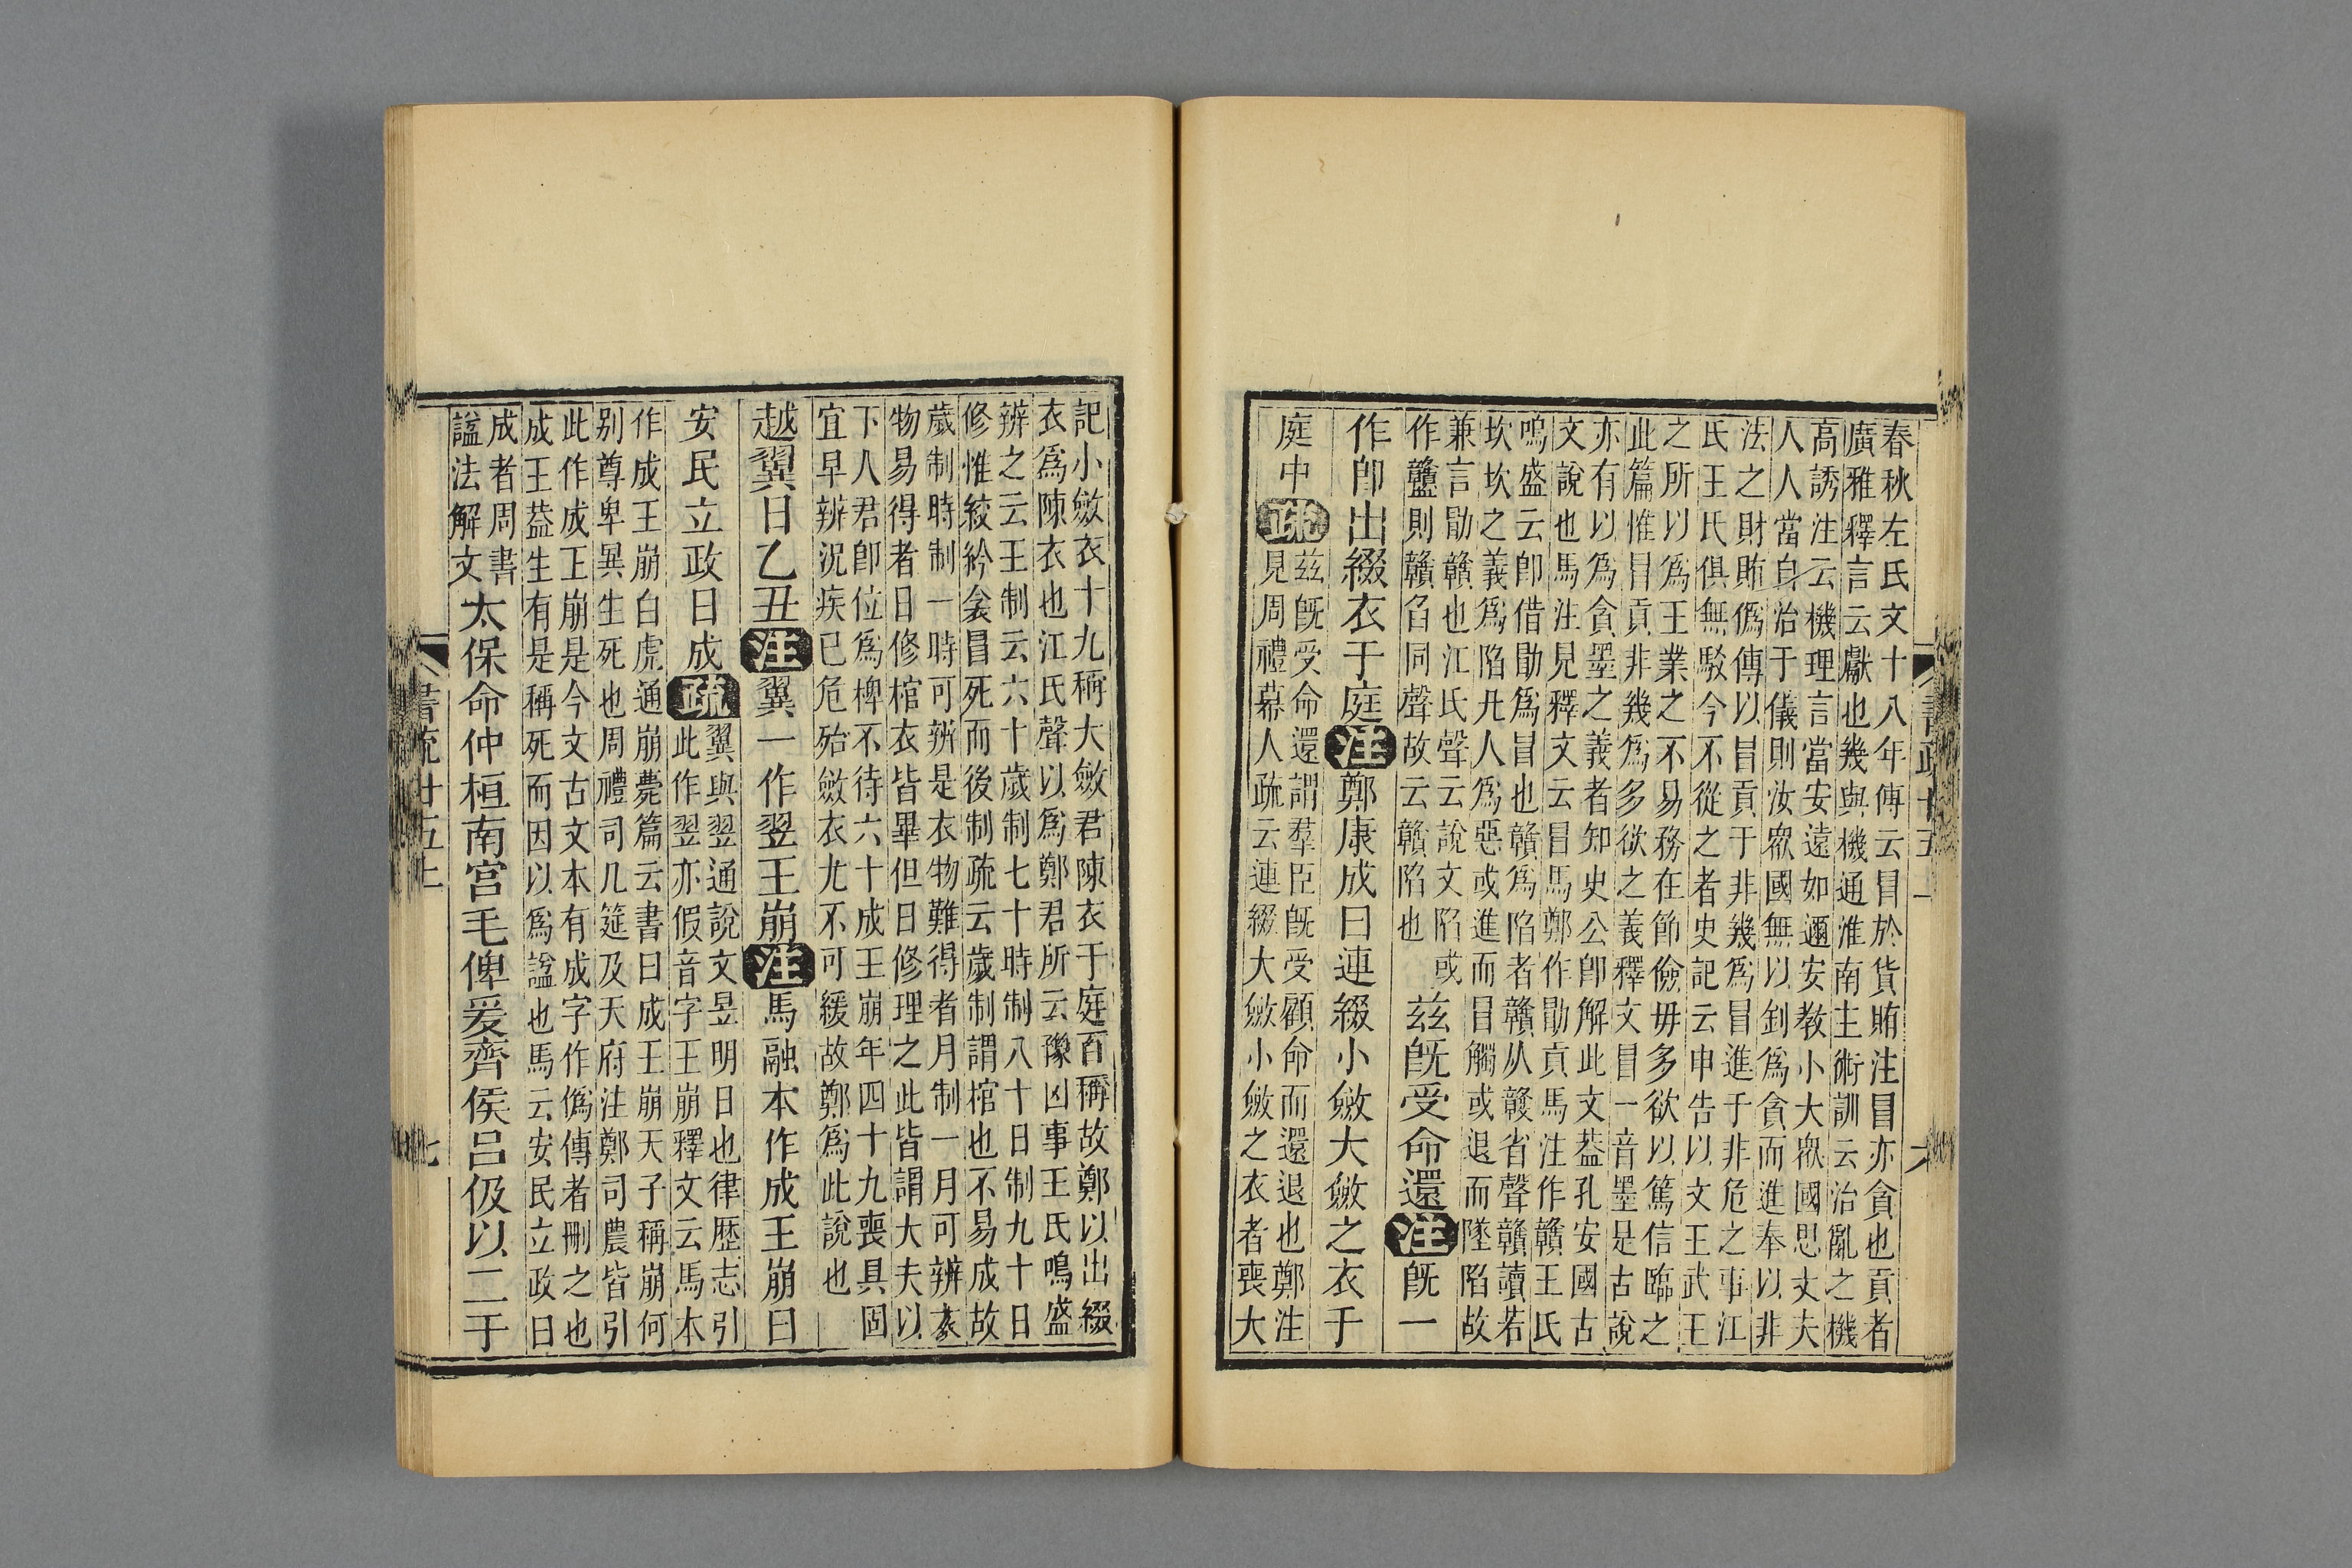 書疏廿五上
六
春秋左氏文十八年傳云冒於貨賄注冒亦貪也貢者
廣雅釋言云獻也幾與機通淮南主術訓云治亂之機
高誘注云機理言當安遠如邇安教小大衆國思丈夫
人人當自治于儀則汝衆國無以釗爲貪而進奉以非
法之財賄僞傳以冒貢于非幾爲冒進于非危之事江
氏王氏俱無駁今不從之者史記云申告以文王武王
之所以爲王業之不易務在節儉毋多欲以篤信臨之
此篇惟冒貢非幾爲多欲之義釋文冒一音墨是古說
亦有以爲貪墨之義者知史公卽解此文葢孔安國古
文說也馬注見釋文云冒馬鄭作勖貢馬注作贛王氏
鳴盛云卽借勖爲冒也贛爲陷者贛从竷省聲贛讀若
坎坎之義爲陷凡人爲惡或進而冒觸或退而墜陷故
兼言勖贛也江氏聲云說文陷或
作則贛臽同聲故云贛陷也
茲旣受命還注旣一
作卽出綴衣于庭注鄭康成曰連綴小斂大斂之衣于
庭中疏
茲旣受命還謂羣臣旣受顧命而還退也鄭注
見周禮幕人疏云連綴大斂小斂之衣者喪大
記小斂衣十九稱大斂君陳衣于庭百稱故鄭以出綴
衣爲陳衣也江氏聲以爲鄭君所云豫凶事王氏鳴盛
辨之云王制云六十歲制七十時制八十日制九十日
修惟絞紟衾冒死而後制疏云歲制謂棺也不易成故
歲制時制一時可辨是衣物難得者月制一月可辨衣
物易得者日修棺衣皆畢但日修理之此皆謂大夫以
下人君卽位爲椑不待六十成王崩年四十九喪具固
宜早辨況疾已危殆斂衣尤不可緩故鄭爲此說也
越翼日乙丑注翼一作翌王崩注馬融本作成王崩曰
安民立政曰成疏
翼與翌通說文昱明日也律歷志引
此作翌亦假音字王崩釋文云馬本
作成王崩白虎通崩薨篇云書曰成王崩天子稱崩何
别尊卑異生死也周禮司几筵及天府注鄭司農皆引
此作成王崩是今文古文本有成字作僞傳者刪之也
成王葢生有是稱死而因以爲謚也馬云安民立政曰
成者周書
謚法解文
太保命仲桓南宫毛俾爰齊侯呂伋以二干
書疏廿五上
七